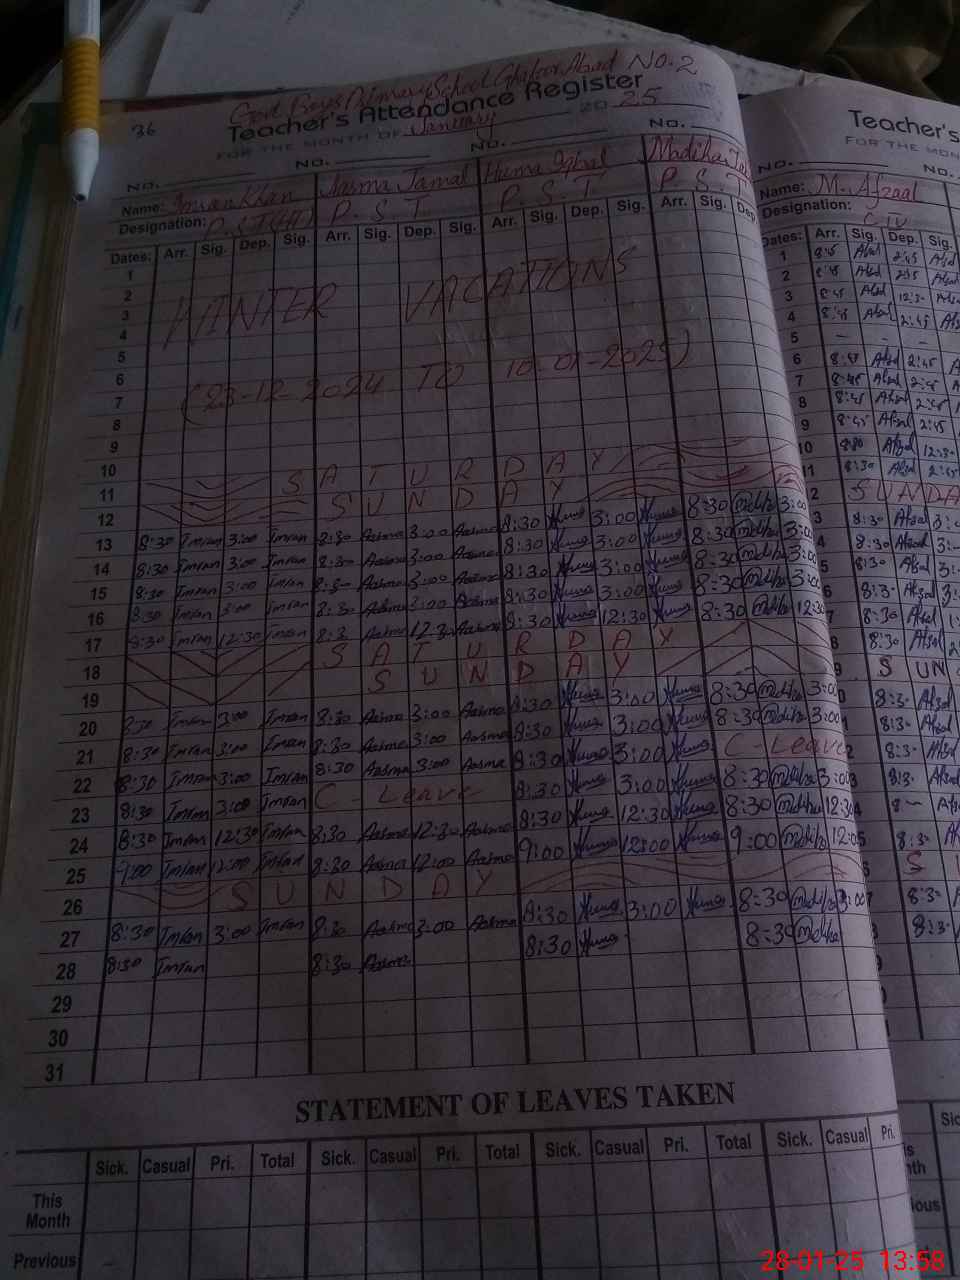 Govt Boys Primary School Ghafoor Abad No. 2
36
Teacher's Attendance Register
FOR THE MONTH OF January 2025
NO. NO. NO. NO.
Name: Imran Khan Aasma Jamal Huma Iqbal Madiha
Designation: P.S.T P.S.T P.S.T
Dates: Arr. Sig. Dep. Sig. Arr. Sig. Dep. Sig. Arr. Sig. Dep. Sig. Arr. Sig. Dep
1
2
3
WINTER VACATIONS
4
5
6
7
(23-12-2024 TO 10-01-2025)
8
9
10
11 SATURDAY
12 SUNDAY
13 8:30 Imran 3:00 Imran 8:30 Aasma 3:00 Aasma 8:30 Huma 3:00 Huma 8:30 Madiha 3:00
14 8:30 Imran 3:00 Imran 8:30 Aasma 3:00 Aasma 8:30 Huma 3:00 Huma 8:30 Madiha 3:00
15 8:30 Imran 3:00 Imran 8:30 Aasma 3:00 Aasma 8:30 Huma 3:00 Huma 8:30 Madiha 3:00
16 8:30 Imran 3:00 Imran 8:30 Aasma 3:00 Aasma 8:30 Huma 3:00 Huma 8:30 Madiha 3:00
17 8:30 Imran 12:30 Imran 8:30 Aasma 12:30 Aasma 8:30 Huma 12:30 Huma 8:30 Madiha 12:30
18 SATURDAY
19 SUNDAY
20 8:30 Imran 3:00 Imran 8:30 Aasma 3:00 Aasma 8:30 Huma 3:00 Huma 8:30 Madiha 3:00
21 8:30 Imran 3:00 Imran 8:30 Aasma 3:00 Aasma 8:30 Huma 3:00 Huma 8:30 Madiha 3:00
22 8:30 Imran 3:00 Imran 8:30 Aasma 3:00 Aasma 8:30 Huma 3:00 Huma C-Leave
23 8:30 Imran 3:00 Imran C-Leave 8:30 Huma 3:00 Huma 8:30 Madiha 3:00
24 8:30 Imran 12:30 Imran 8:30 Aasma 12:30 Aasma 8:30 Huma 12:30 Huma 8:30 Madiha 12:30
25 9:00 Imran 12:00 Imran 8:30 Aasma 12:00 Aasma 9:00 Huma 12:00 Huma 9:00 Madiha 12:05
26 SUNDAY
27 8:30 Imran 3:00 Imran 8:30 Aasma 3:00 Aasma 8:30 Huma 3:00 Huma 8:30 Madiha 3:00
28 8:30 Imran 8:30 Aasma 8:30 Huma 8:30 Madiha
29
30
31
STATEMENT OF LEAVES TAKEN
Sick. Casual Pri. Total Sick. Casual Pri. Total Sick. Casual Pri. Total Sick. Casual Pri.
This Month
Previous
Teacher's
FOR THE MON
NO. NO.
Name: M. Afzaal
Designation:
Dates: Arr. Sig. Dep. Sig.
1 8:45 Afzal 2:45 Afzal
2 8:45 Afzal 2:45 Afzal
3 8:45 Afzal 12:30 Afzal
4 8:45 Afzal 2:45 Afzal
5 - - -
6 8:45 Afzal 2:45 Afzal
7 8:45 Afzal 2:45
8 8:45 Afzal 2:45
9 8:45 Afzal 2:45
10 8:30 Afzal 12:30
11 8:30 Afzal 2:45
SUNDA
8:30 Afzal
8:30 Afzal
8:30 Afzal
8:30 Afzal
8:30 Afzal
8:30 Afzal
SUN
28-01-25 13:58